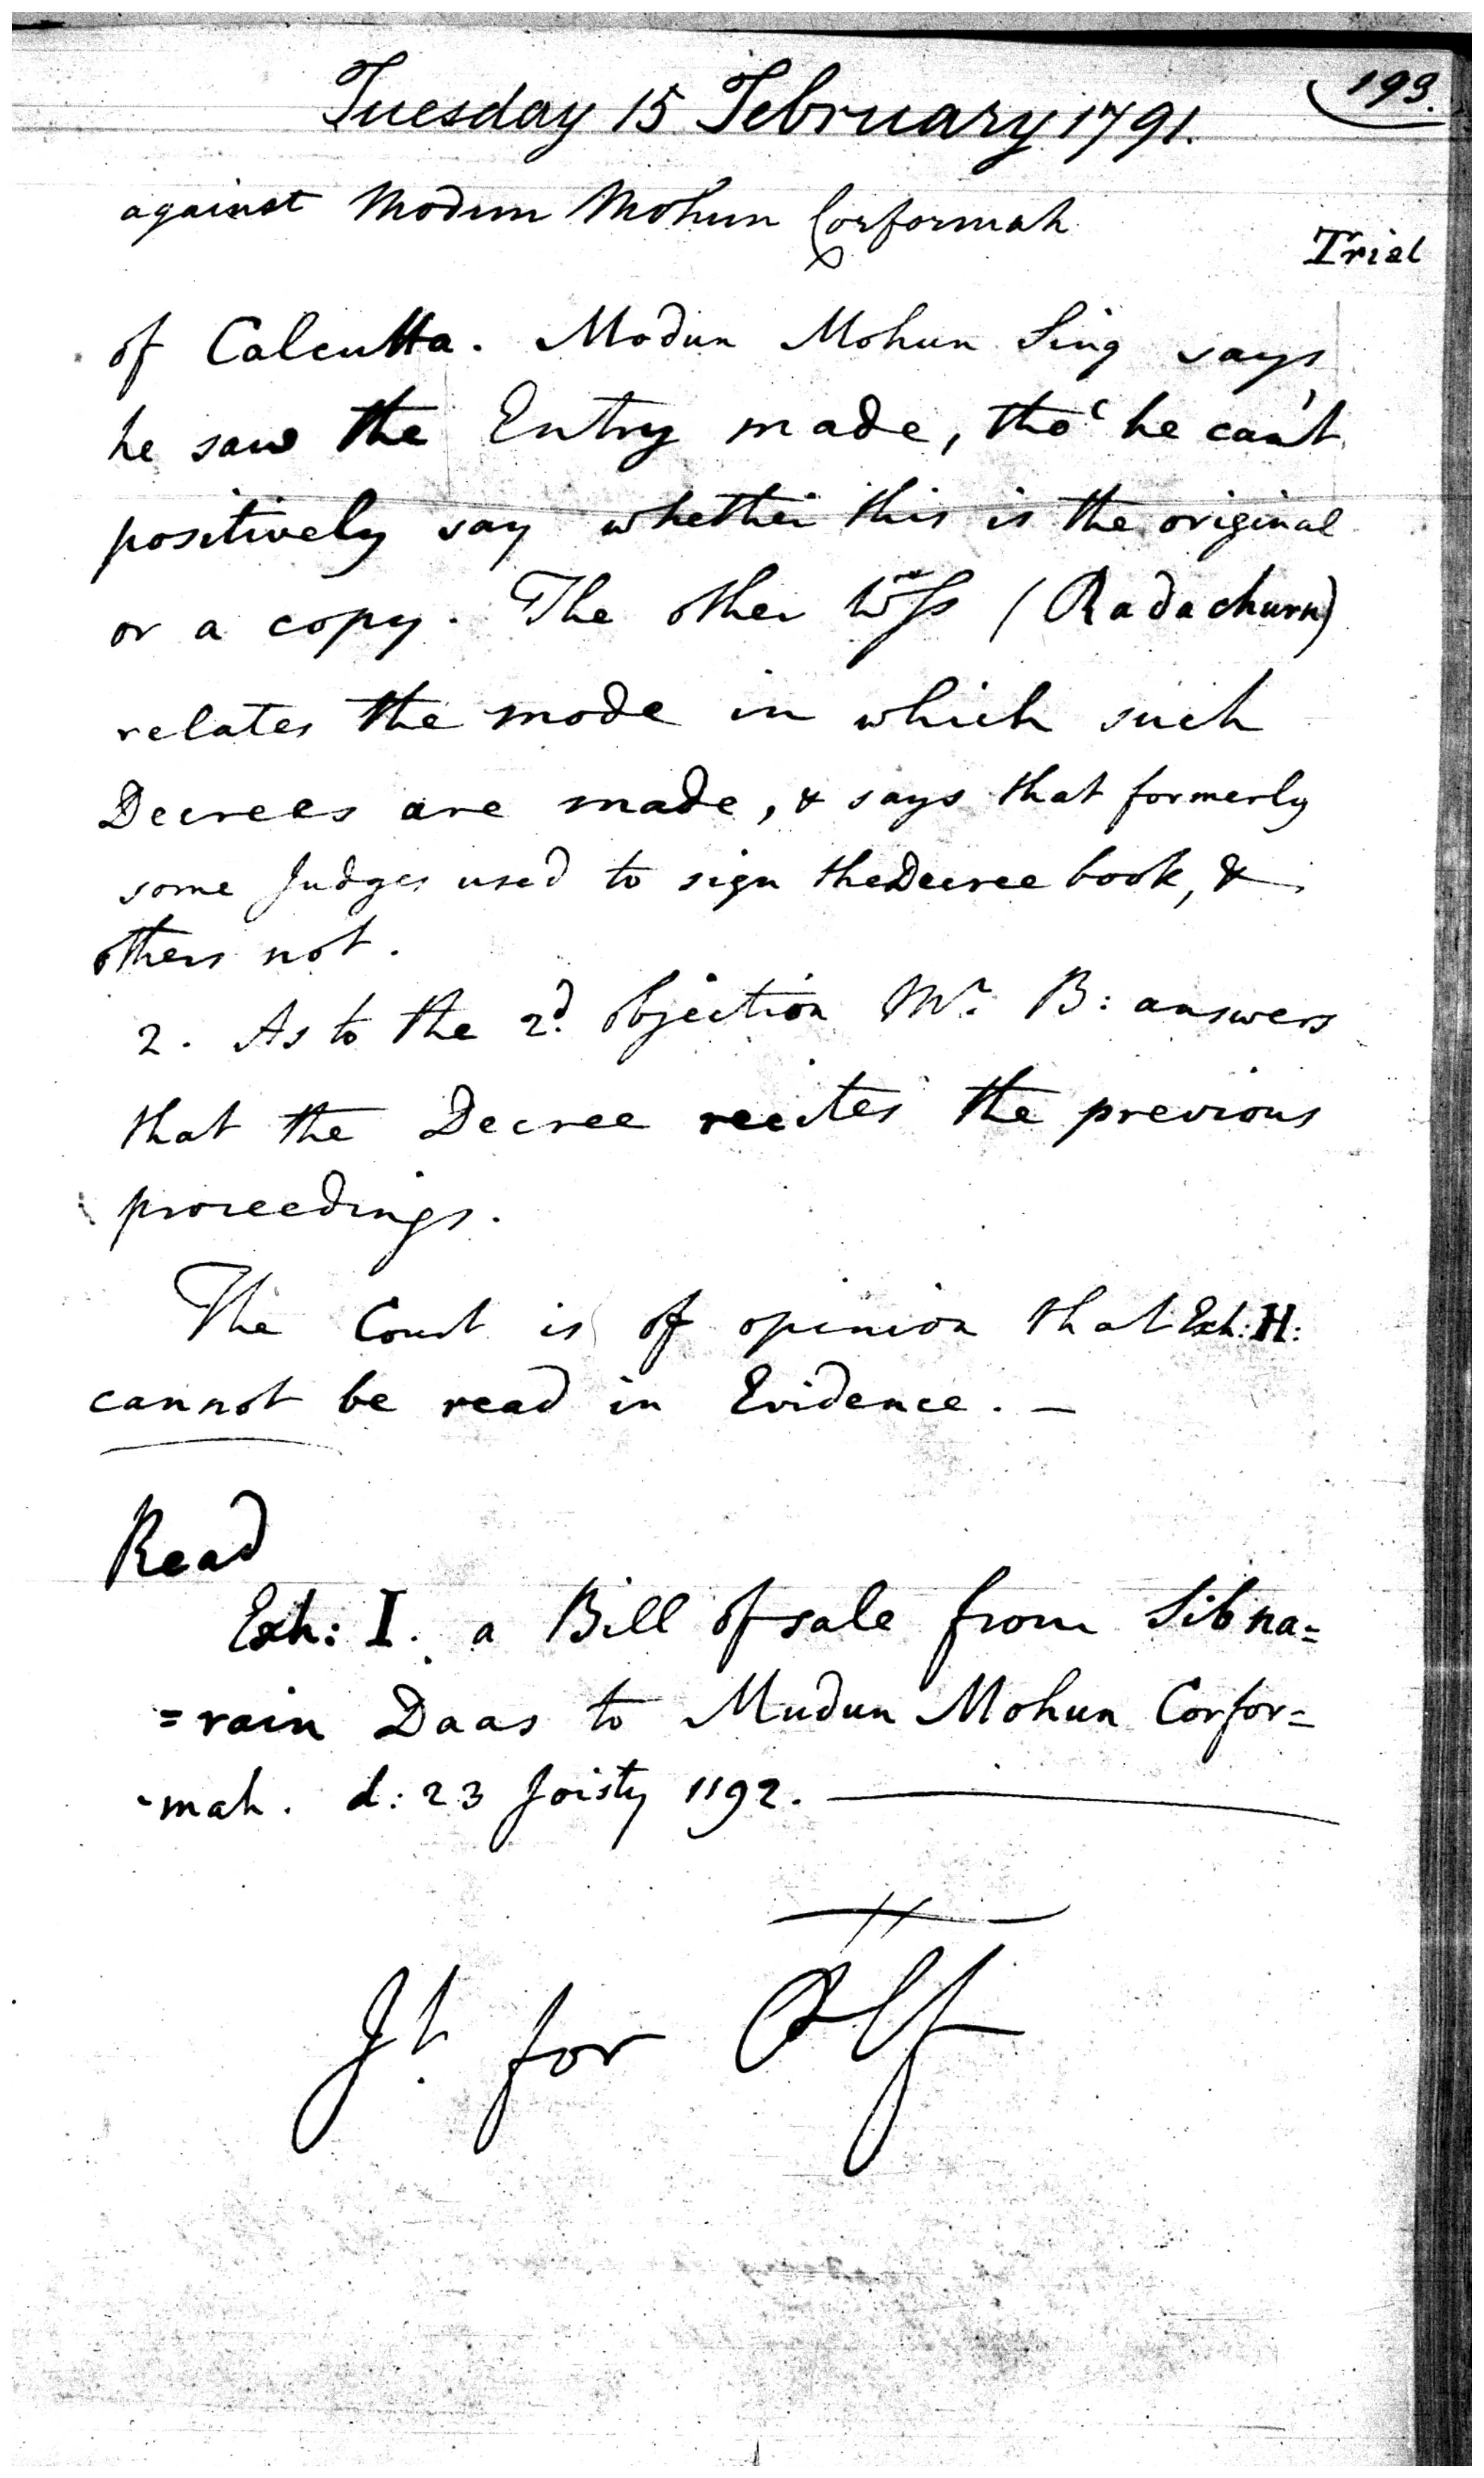 193.
Tuesday 15 February 1791.
against Modun Mohun Corformah
Trial
of Calcutta. Modun Mohun Sing says
he saw the Entry made, tho' he can't
positively say whether this is the original
or a copy. The other Wss (Radachurn)
relates the mode in which such
Decrees are made, & says that formerly
some Judges used to sign the Decree book, &
others not.
2. As to the 2d. objection Mr. B: answers
that the Decree recites the previous
proceedings.
The Court is of opinion that Exh: H:
cannot be read in Evidence. -
Read
Exh: I. a Bill of sale from Sibna=
=rain Daas to Mudun Mohun Corfor=
-mah. d: 23 Joisty 1192.
Jt. for Plf